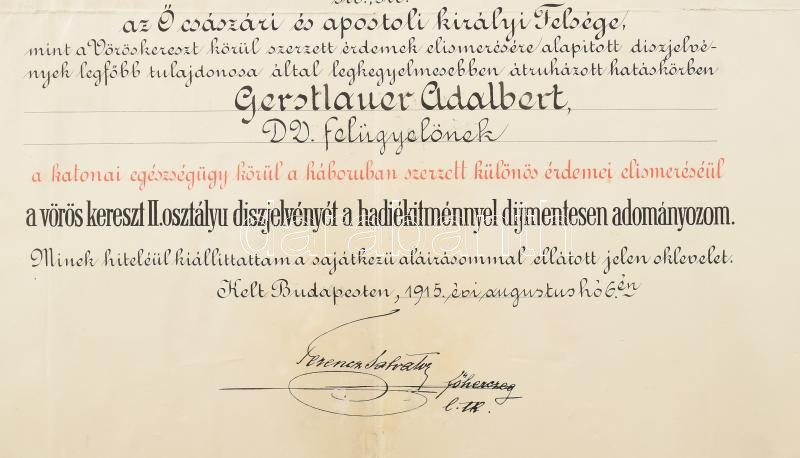 az Ő császári és apostoli királyi Felsége,
mint a Vöröskereszt körül szerzett érdemek elismerésére alapitott diszjelvé-
nyek legfőbb tulajdonosa által leghegyelmesebben átruházott hatáskörben
Gerstlauer Adalbert,
DV. felügyelőnek
a katonai egészségügy körül a háboruban szerzett különös érdemei elismeréséül
a vörös kereszt II. osztályu diszjelvényét a hadiékitménnyel dijmentesen adományozom.
Minek hiteléül kiállittattam a sajátkezü aláirásommal ellátott jelen oklevelet.
Kelt Budapesten, 1915. évi augustus hó 6.én
Ferencz Salvator
főherczeg